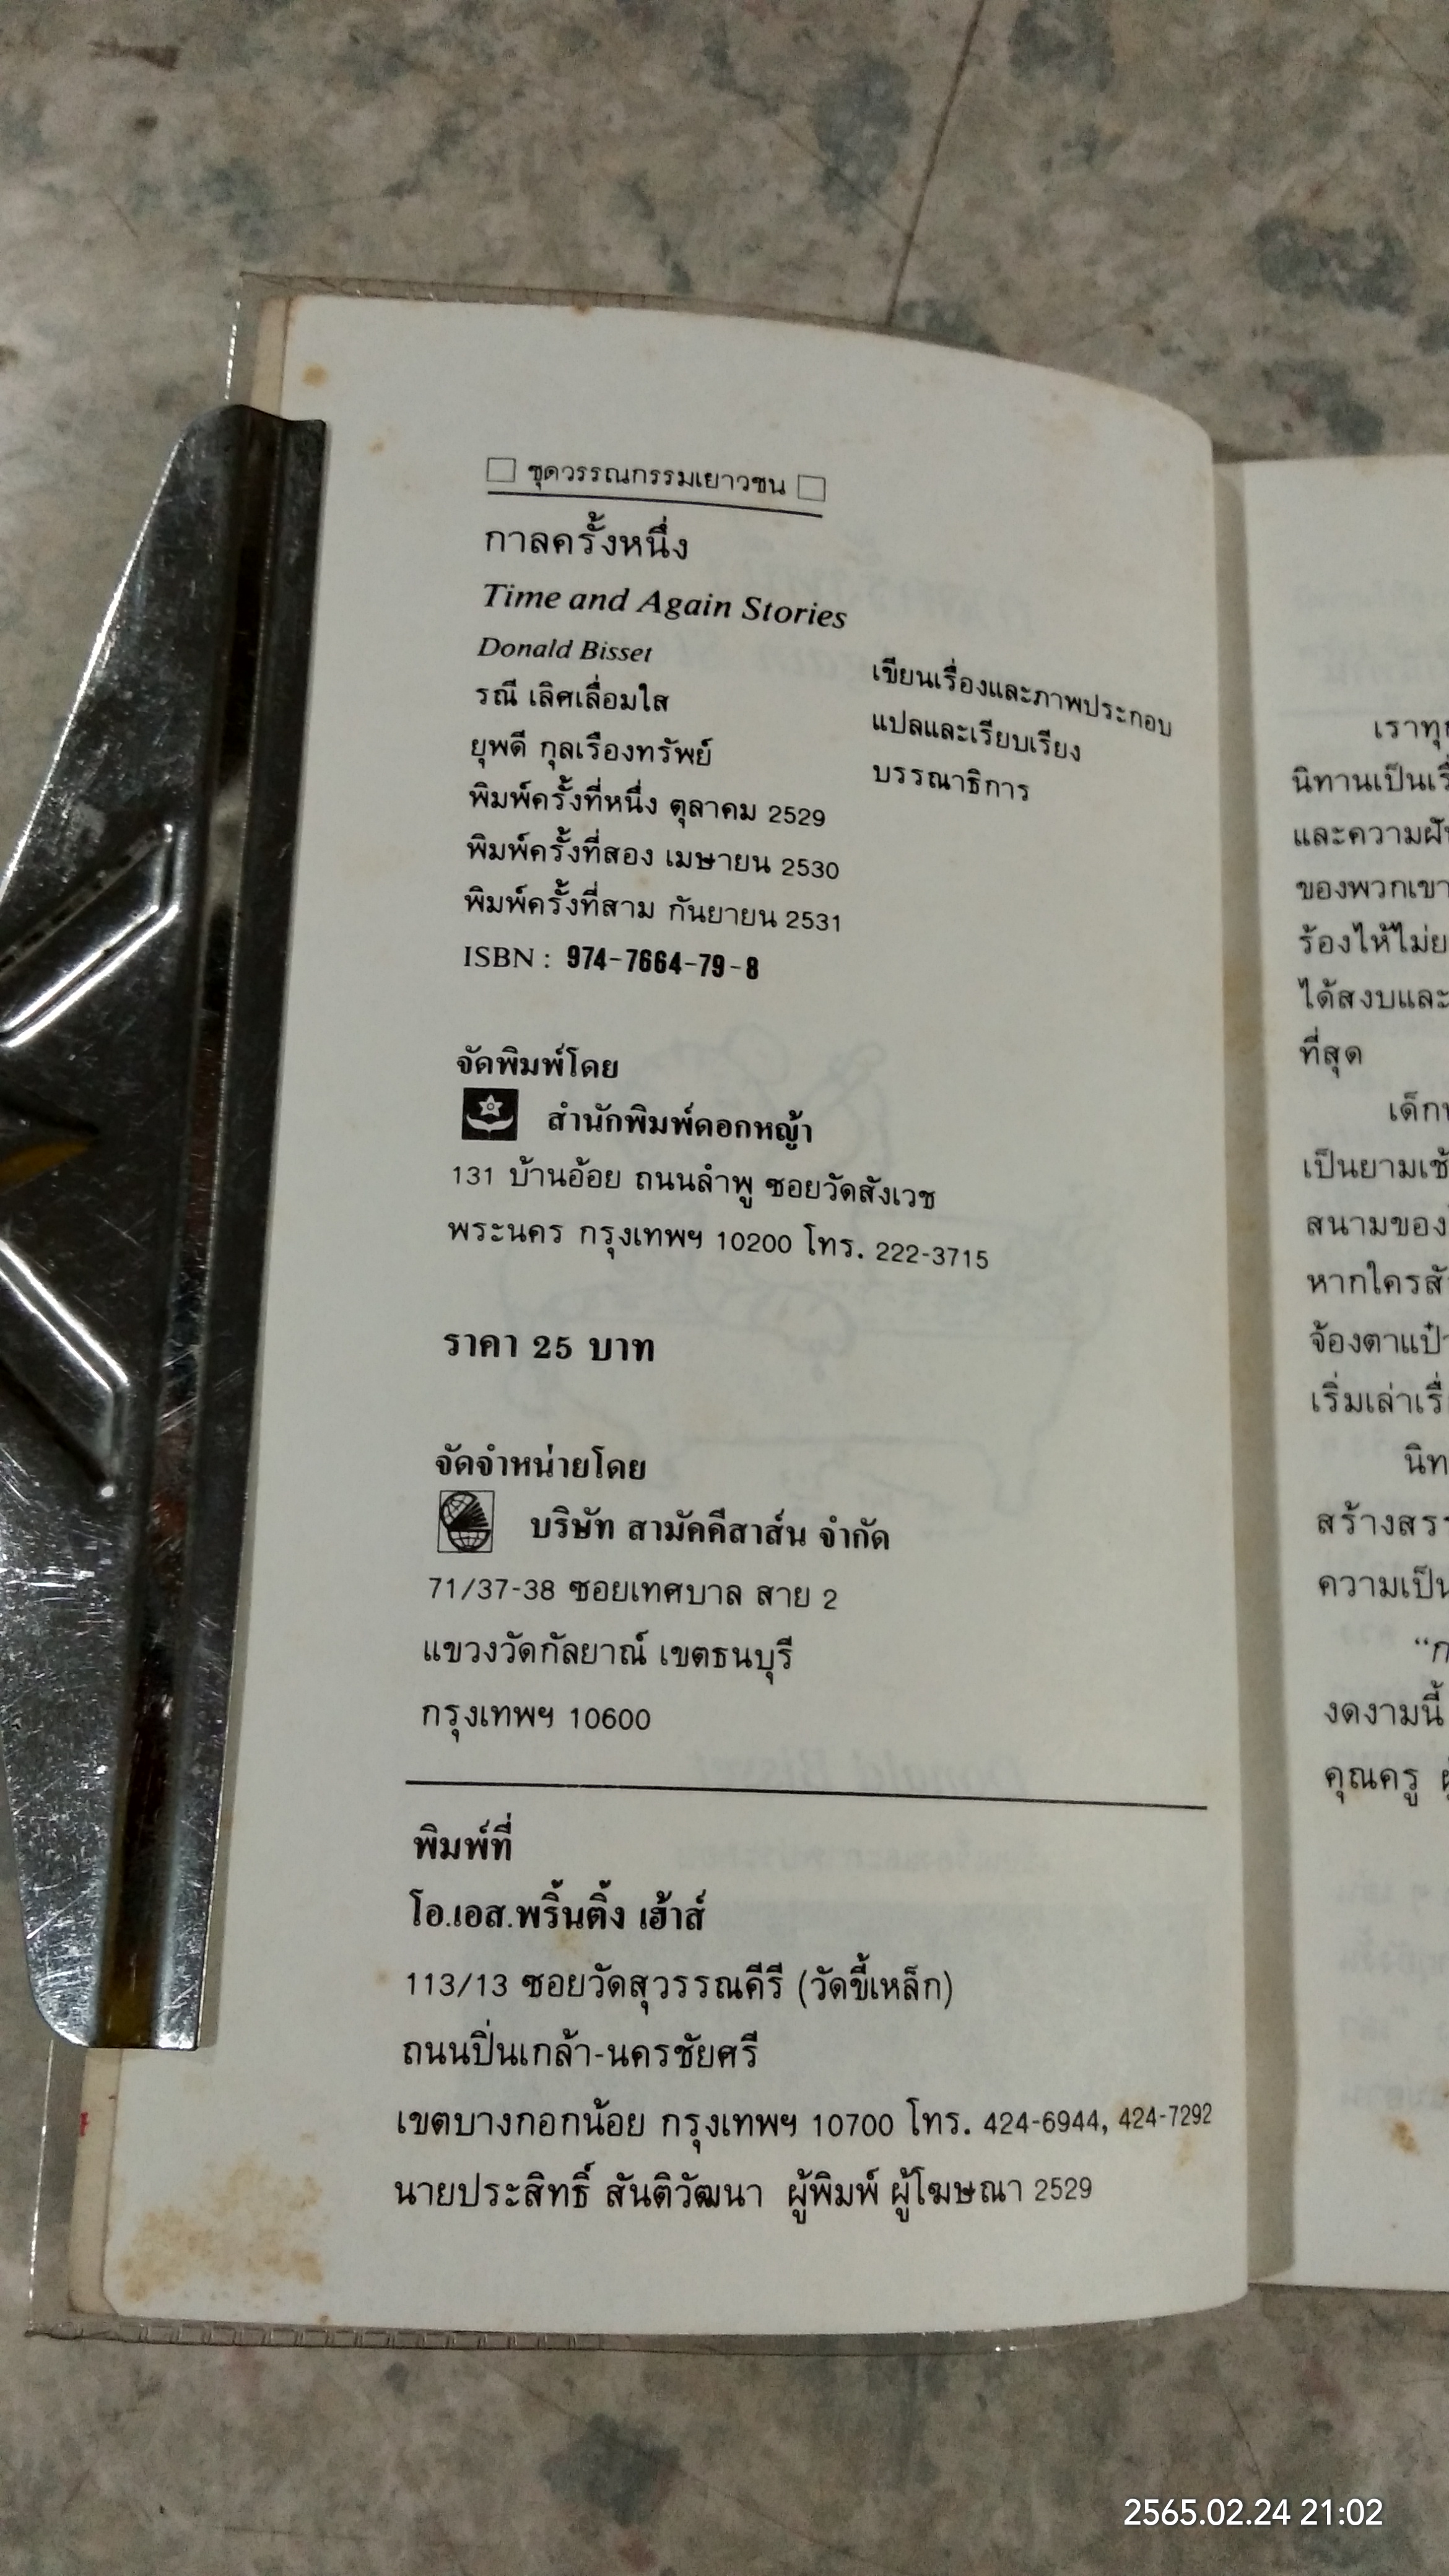 ชุดวรรณกรรมเยาวชน
กาลครั้งหนึ่ง
Time and Again Stories
Donald Bisset เขียนเรื่องและภาพประกอบ
รณี เลิศเลื่อมใส แปลและเรียบเรียง
ยุพดี กุลเรืองทรัพย์ บรรณาธิการ
พิมพ์ครั้งที่หนึ่ง ตุลาคม 2529
พิมพ์ครั้งที่สอง เมษายน 2530
พิมพ์ครั้งที่สาม กันยายน 2531
ISBN : 974-7664-79-8
จัดพิมพ์โดย
สำนักพิมพ์ดอกหญ้า
131 บ้านอ้อย ถนนลำพู ซอยวัดสังเวช
พระนคร กรุงเทพฯ 10200 โทร. 222-3715
ราคา 25 บาท
จัดจำหน่ายโดย
บริษัท สามัคคีสาส์น จำกัด
71/37-38 ซอยเทศบาล สาย 2
แขวงวัดกัลยาณ์ เขตธนบุรี
กรุงเทพฯ 10600
พิมพ์ที่
โอ.เอส.พริ้นติ้ง เฮ้าส์
113/13 ซอยวัดสุวรรณคีรี (วัดขี้เหล็ก)
ถนนปิ่นเกล้า-นครชัยศรี
เขตบางกอกน้อย กรุงเทพฯ 10700 โทร. 424-6944, 424-7292
นายประสิทธิ์ สันติวัฒนา ผู้พิมพ์ ผู้โฆษณา 2529
เราทุ
นิทานเป็นเรื่
และความฝั
ของพวกเขา
ร้องไห้ไม่ย
ได้สงบและ
ที่สุด
เด็ก
เป็นยามเช้
สนามของ
หากใครสั
จ้องตาแป๋
เริ่มเล่าเรื่
นิท
สร้างสรร
ความเป็น
“ก
งดงามนี้
คุณครู
2565.02.24 21:02